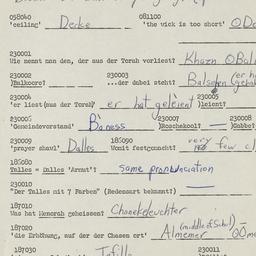 058040 081100
'ceiling' Decke 'the wick is too short'
230001
Wie nennt man den, der aus der Torah vorliest? Khazn
230002 230003
?Balkoore? ...der dabei steht?
230004 230005
'er liest (aus der Torah)' er hat geleient leient?
230006 230007 230008
'Gemeindevorstand' Barness ?Roschekool? — ?Gabbe?
230009 185050
'prayer shawl' Dalles Womit festgemacht? very few
185060
Talles = Dalles 'Armut'? same pronunciation
230010
"Der Talles mit 7 Farben" (Redensart bekannt?) —
187010
Was hat Menorah geheissen? Chanekeleuchter
187020
'die Erhöhung, auf der der Chasen ort' Almemer (middle of Schul)
187030 230011